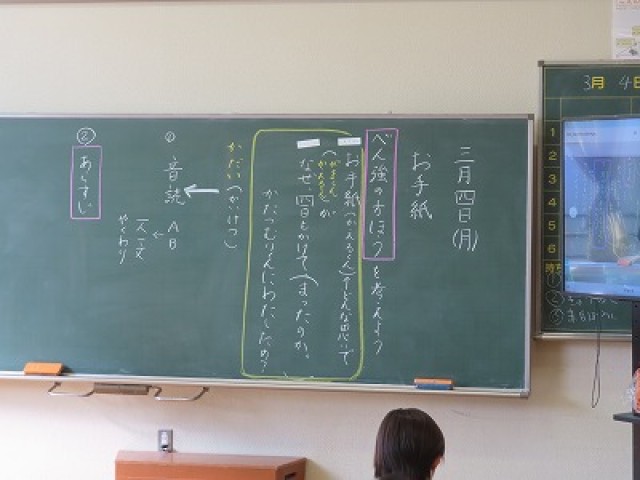 三月四日(月)
お手紙
べん強の方ほうを考えよう
お手紙(かえるくん)
(がまくん かえるくん)が どんな思いで
なぜ四日もかけて(まったのか。
かたつむりくんにわたしたの?
かだい(かいけつ)
① 音読 AB
一人一文
やくわり
② あらすじ
3月 4日
1
2
3
4
5
6